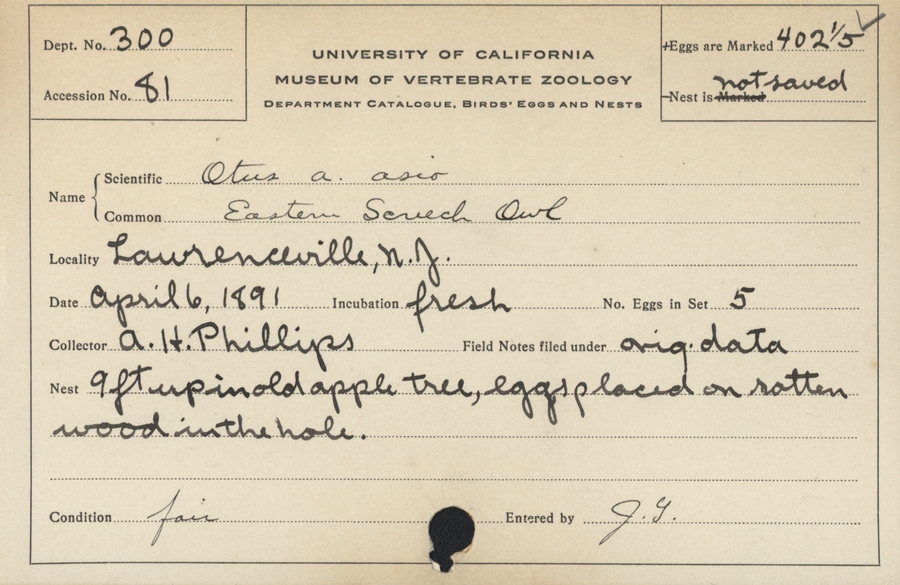 Dept. No. 300
Accession No. 81
UNIVERSITY OF CALIFORNIA
MUSEUM OF VERTEBRATE ZOOLOGY
DEPARTMENT CATALOGUE, BIRDS' EGGS AND NESTS
Eggs are Marked 402 1/5
not saved
Nest is Marked
Name
Scientific Otus a. asio
Common Eastern Screech Owl
Locality Lawrenceville, N.J.
Date April 6, 1891 Incubation fresh No. Eggs in Set 5
Collector A. H. Phillips Field Notes filed under orig. data
Nest 9 ft up in old apple tree, eggs placed on rotten
wood in the hole.
Condition fair Entered by J.G.